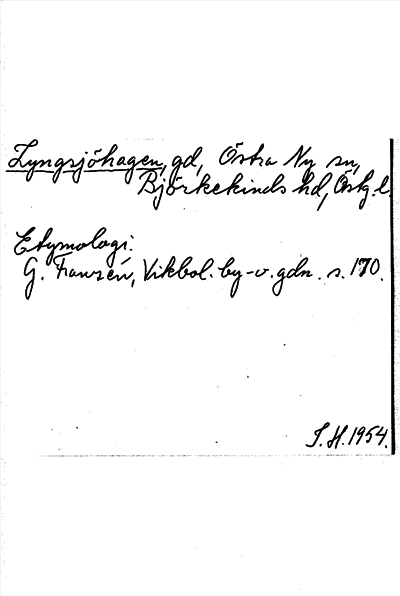 Lyngsjöhagen, gd, Östra Ny sn,
Björkekinds hd, Östg. l.
Etymologi.
G. Franzén, Vikbol. by- o. gdn. s. 170.
S. H. 1954.